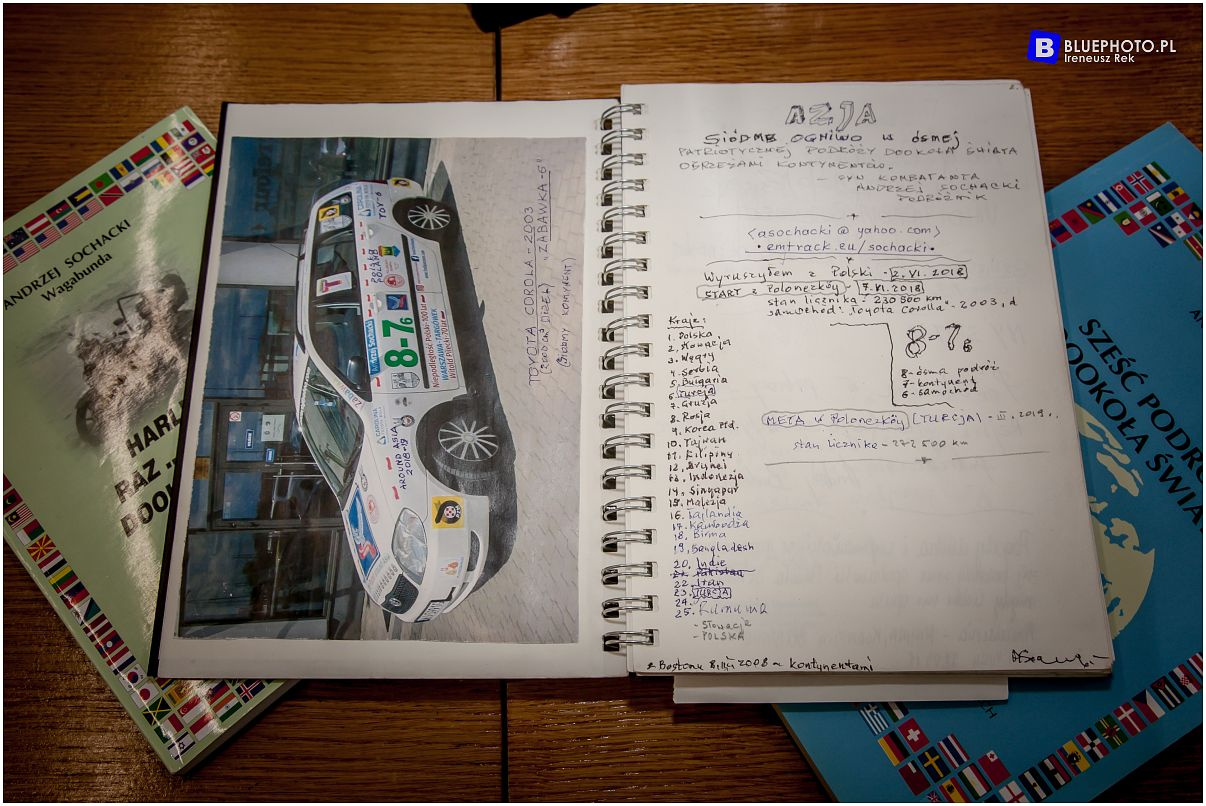 BLUEPHOTO.PL
Ireneusz Rek
ANDRZEJ SOCHACKI
Wagabunda
HARL
RAZ
DOO
TOYOTA COROLA - 2003
"ZABAWKA-6"
8-7
6
Niepodległość Polski-100 lat
WARSZAWA-TARGÓWEK
Witold Pilecki-70 lat
AROUND ASIA
2018-19
TOY-6
2.
AZJA
SIÓDME OGNIWO w ósmej
PATRIOTYCZNEJ PODRÓŻY DOOKOŁA ŚWIATA
OBRZEŻAMI KONTYNENTÓW.
- SYN KOMBATANTA
ANDRZEJ SOCHACKI
PODRÓŻNIK
<asochacki @ yahoo.com>
• emtrack.eu/sochacki •
Wyruszyłem z Polski - 2.VI.2018
START z Polonezköy - 7.VI.2018
stan licznika - 230 500 km
samochód: "Toyota Corolla" - 2003, d
8-7
6
8 - ósma podróż
7 - kontynent
6 - samochód
META w Polonezköy [TURCJA] - III.2019r.
stan licznika - 272 500 km
Kraje:
1. Polska
2. Słowacja
3. Węgry
4. Serbia
5. Bułgaria
6. Turcja
7. Gruzja
8. Rosja
9. Korea Płd.
10. Tajwan
11. Filipiny
12. Brunei
13. Indonezja
14. Singapur
15. Malezja
16. Tajlandia
17. Kambodża
18. Birma
19. Bangladesh
20. Indie
21. Pakistan
22. Iran
23. TURCJA
24.
25. Rumunia
- Słowacja
- POLSKA
z Bostonu 2008 - kontynentami
SZEŚĆ PODRÓ
DOOKOŁA ŚWIA